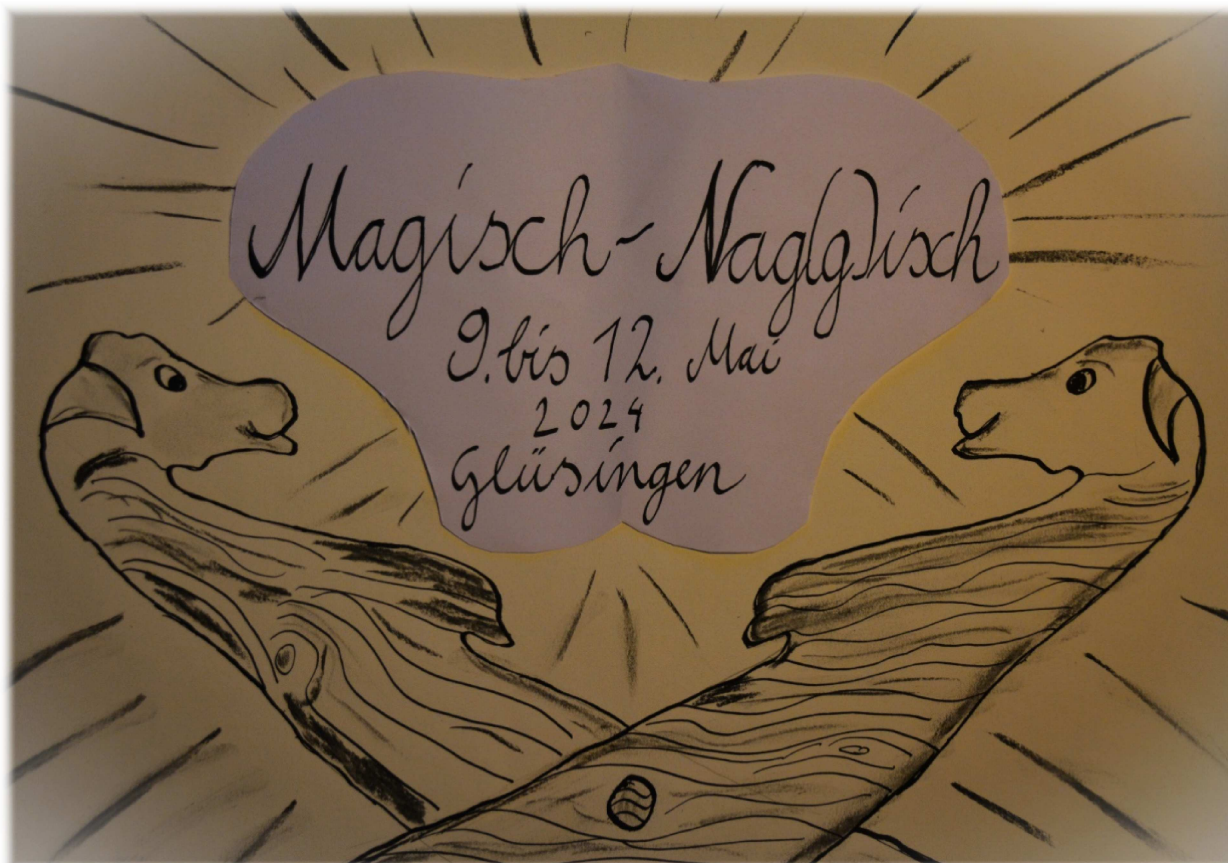 Magisch-Nag(g)isch
9. bis 12. Mai
2024
Glüsingen